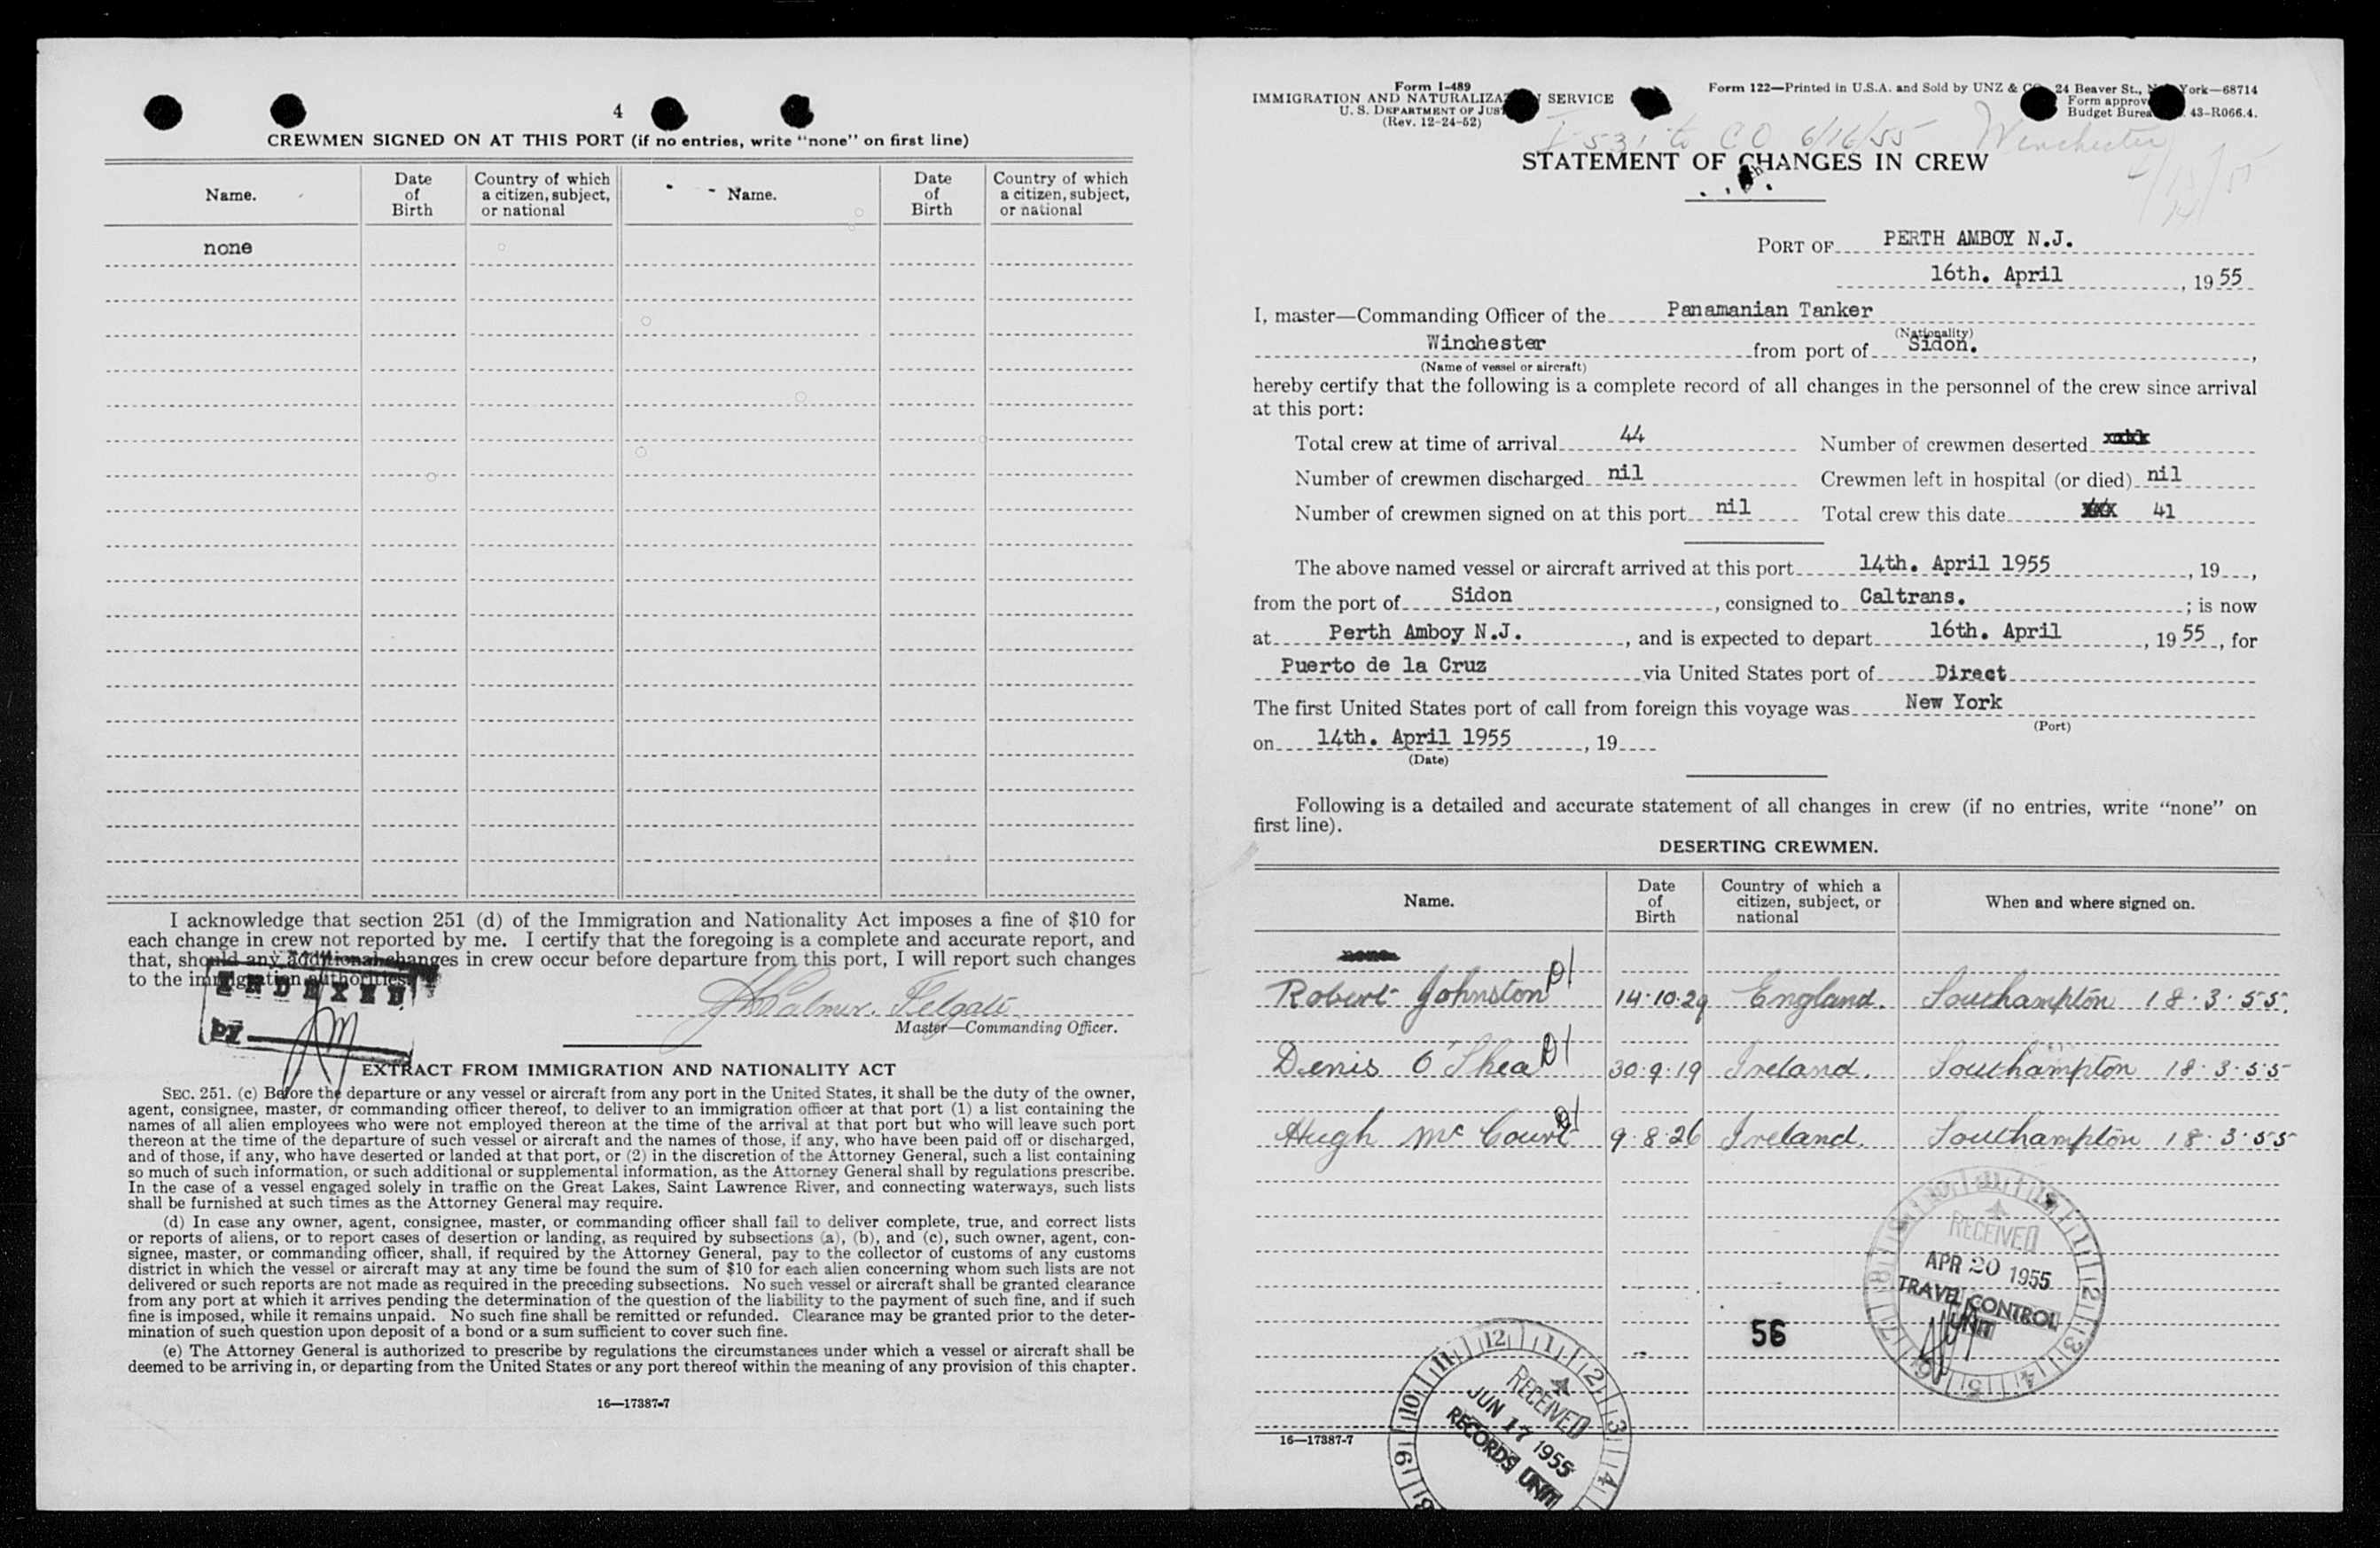 4
CREWMEN SIGNED ON AT THIS PORT (if no entries, write "none" on first line)
Name. Date of Birth Country of which a citizen, subject, or national Name. Date of Birth Country of which a citizen, subject, or national
none
I acknowledge that section 251 (d) of the Immigration and Nationality Act imposes a fine of $10 for
each change in crew not reported by me. I certify that the foregoing is a complete and accurate report, and
that, should any additional changes in crew occur before departure from this port, I will report such changes
to the immigration authorities.
INDEXED
by
Master—Commanding Officer.
EXTRACT FROM IMMIGRATION AND NATIONALITY ACT
SEC. 251. (c) Before the departure or any vessel or aircraft from any port in the United States, it shall be the duty of the owner,
agent, consignee, master, or commanding officer thereof, to deliver to an immigration officer at that port (1) a list containing the
names of all alien employees who were not employed thereon at the time of the arrival at that port but who will leave such port
thereon at the time of the departure of such vessel or aircraft and the names of those, if any, who have been paid off or discharged,
and of those, if any, who have deserted or landed at that port, or (2) in the discretion of the Attorney General, such a list containing
so much of such information, or such additional or supplemental information, as the Attorney General shall by regulations prescribe.
In the case of a vessel engaged solely in traffic on the Great Lakes, Saint Lawrence River, and connecting waterways, such lists
shall be furnished at such times as the Attorney General may require.
(d) In case any owner, agent, consignee, master, or commanding officer shall fail to deliver complete, true, and correct lists
or reports of aliens, or to report cases of desertion or landing, as required by subsections (a), (b), and (c), such owner, agent, con-
signee, master, or commanding officer, shall, if required by the Attorney General, pay to the collector of customs of any customs
district in which the vessel or aircraft may at any time be found the sum of $10 for each alien concerning whom such lists are not
delivered or such reports are not made as required in the preceding subsections. No such vessel or aircraft shall be granted clearance
from any port at which it arrives pending the determination of the question of the liability to the payment of such fine, and if such
fine is imposed, while it remains unpaid. No such fine shall be remitted or refunded. Clearance may be granted prior to the deter-
mination of such question upon deposit of a bond or a sum sufficient to cover such fine.
(e) The Attorney General is authorized to prescribe by regulations the circumstances under which a vessel or aircraft shall be
deemed to be arriving in, or departing from the United States or any port thereof within the meaning of any provision of this chapter.
16—17387-7
Form I-489
IMMIGRATION AND NATURALIZA SERVICE
U. S. DEPARTMENT OF JUS
(Rev. 12-24-52)
Form 122—Printed in U.S.A. and Sold by UNZ & C 24 Beaver St., N York—68714
Form approv
Budget Burea 43-R066.4.
I-531 to CO 6/16/55 Winchester
STATEMENT OF CHANGES IN CREW
PORT OF PERTH AMBOY N.J.
16th. April, 1955
I, master—Commanding Officer of the Panamanian Tanker
(Nationality)
Winchester from port of Sidon.,
(Name of vessel or aircraft)
hereby certify that the following is a complete record of all changes in the personnel of the crew since arrival
at this port:
Total crew at time of arrival 44 Number of crewmen deserted
Number of crewmen discharged nil Crewmen left in hospital (or died) nil
Number of crewmen signed on at this port nil Total crew this date 41
The above named vessel or aircraft arrived at this port 14th. April 1955, 19,
from the port of Sidon, consigned to Caltrans.; is now
at Perth Amboy N.J., and is expected to depart 16th. April, 1955, for
Puerto de la Cruz via United States port of Direct
The first United States port of call from foreign this voyage was New York
(Port)
on 14th. April 1955, 19
(Date)
Following is a detailed and accurate statement of all changes in crew (if no entries, write "none" on
first line).
DESERTING CREWMEN.
Name. Date of Birth Country of which a citizen, subject, or national When and where signed on.
none
Robert Johnston 14.10.29 England. Southampton 18.3.55.
Denis O'Shea 30.9.19 Ireland. Southampton 18.3.55
Hugh Mc Court 9.8.26 Ireland. Southampton 18.3.55
RECEIVED
APR 20 1955
TRAVEL CONTROL
UNIT
56
RECEIVED
JUN 17 1955
RECORDS UNIT
16—17387-7